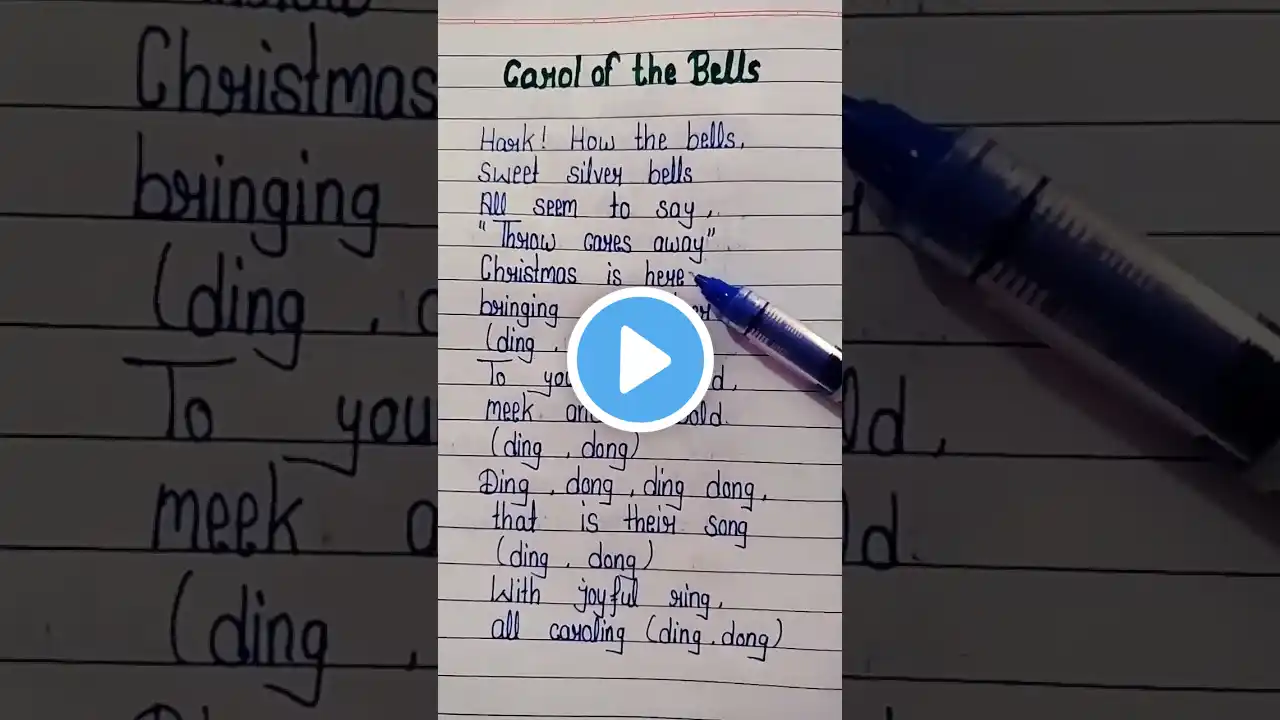 Carol of the Bells
Hark! How the bells,
sweet silver bells
All seem to say,
"Throw cares away".
Christmas is here
bringing
(ding ,
To you
meek and
(ding , dong)
Ding , dong , ding dong,
that is their song
(ding , dong)
With joyful ring,
all caroling (ding, dong)